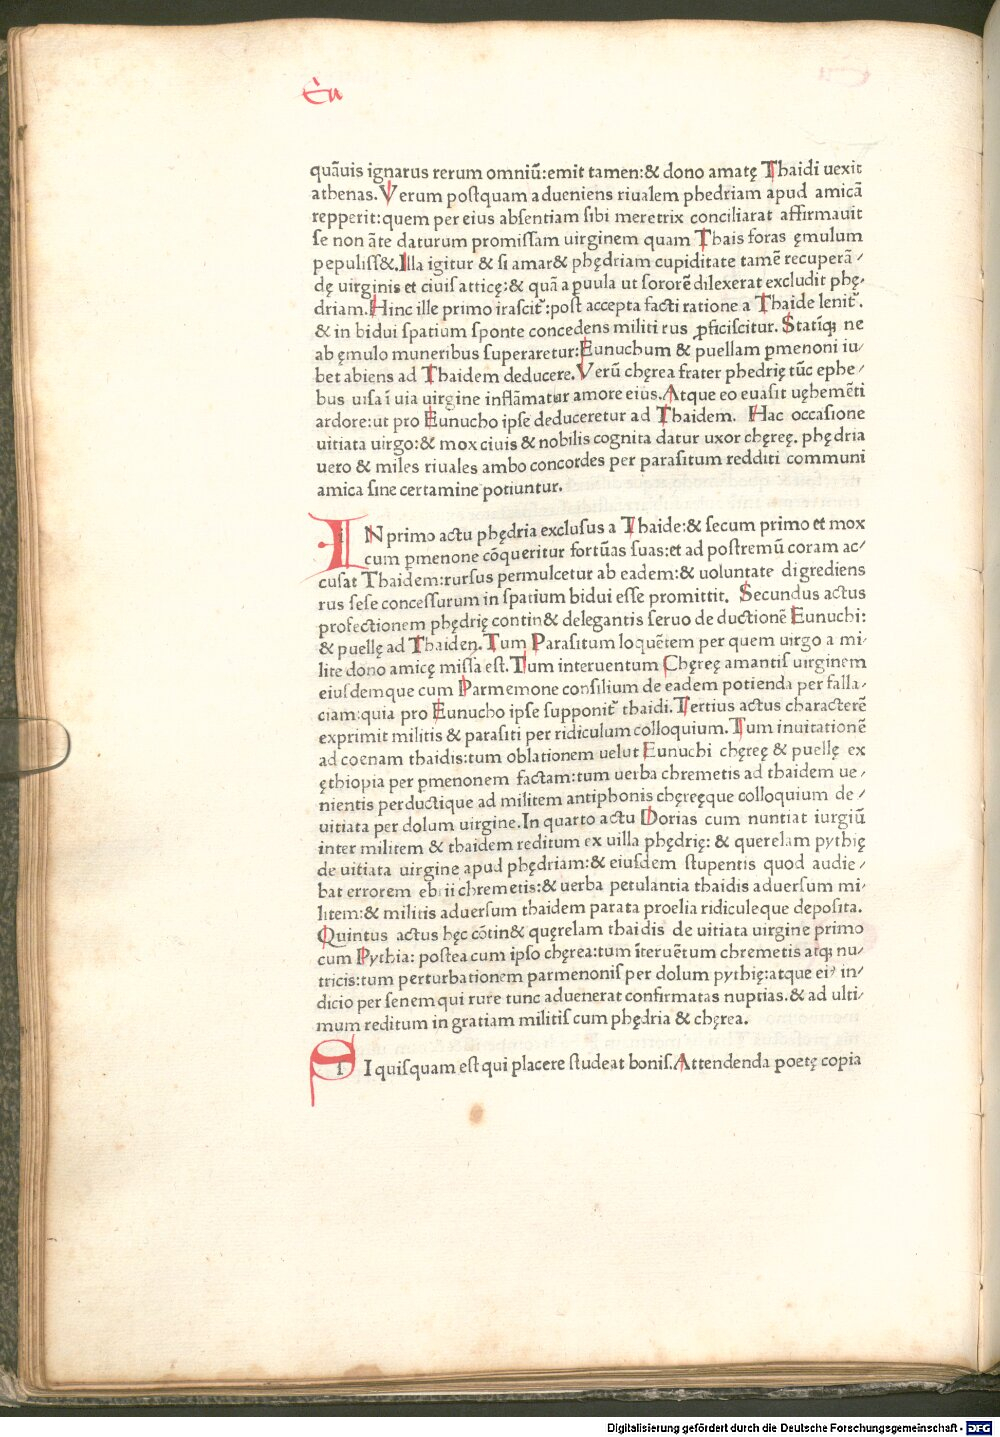 Eu
quāuis ignarus rerum omniū:emit tamen:& dono amatę Thaidi uexit
athenas. Verum postquam adueniens riualem phedriam apud amicā
repperit:quem per eius absentiam sibi meretrix conciliarat affirmauit
se non āte daturum promissam uirginem quam Thais foras ęmulum
pepuliss&. Illa igitur & si amar& phędriam cupiditate tamē recuperā/
dę uirginis et ciuis atticę:& quā a puula ut sororē dilexerat excludit phę/
driam. Hinc ille primo irascit᷑:post accepta facti ratione a Thaide lenit᷑.
& in bidui spatium sponte concedens militi rus ꝓficiscitur. Statiq̄; ne
ab ęmulo muneribus superaretur:Eunuchum & puellam pmenoni iu/
bet abiens ad Thaidem deducere. Verū chęrea frater phedrię tūc ephe/
bus uisa ī uia uirgine inflāmatur amore eius. Atque eo euasit uęhemēti
ardore:ut pro Eunucho ipse deduceretur ad Thaidem. Hac occasione
uitiata uirgo:& mox ciuis & nobilis cognita datur uxor chęreę. phędria
uero & miles riuales ambo concordes per parasitum redditi communi
amica sine certamine potiuntur.
IN primo actu phędria exclusus a Thaide:& secum primo et mox
cum pmenone cōqueritur fortūas suas:et ad postremū coram ac/
cusat Thaidem:rursus permulcetur ab eadem:& uoluntate digrediens
rus sese concessurum in spatium bidui esse promittit. Secundus actus
profectionem phędrię contin& delegantis seruo de ductionē Eunuchi:
& puellę ad Thaiden. Tum Parasitum loquētem per quem uirgo a mi/
lite dono amicę missa est. Tum interuentum Chęreę amantis uirginem
eiusdemque cum Parmemone consilium de eadem potienda per falla/
ciam:quia pro Eunucho ipse supponit᷑ thaidi. Tertius actus characterē
exprimit militis & parasiti per ridiculum colloquium. Tum inuitationē
ad coenam thaidis:tum oblationem uelut Eunuchi chęreę & puellę ex
ęthiopia per pmenonem factam:tum uerba chremetis ad thaidem ue/
nientis perductique ad militem antiphonis chęreęque colloquium de/
uitiata per dolum uirgine. In quarto actu Dorias cum nuntiat iurgiū
inter militem & thaidem reditum ex uilla phędrię: & querelam pythię
de uitiata uirgine apud phędriam:& eiusdem stupentis quod audie/
bat errorem ebrii chremetis:& uerba petulantia thaidis aduersum mi/
litem:& militis aduersum thaidem parata proelia ridiculeque deposita.
Quintus actus hęc cōtin& quęrelam thaidis de uitiata uirgine primo
cum Pythia: postea cum ipso chęrea:tum īteruētum chremetis atq; nu/
tricis:tum perturbationem parmenonis per dolum pythię:atque eiꝰ in/
dicio per senem qui rure tunc aduenerat confirmatas nuptias. & ad ulti/
mum reditum in gratiam militis cum phędria & chęrea.
SI quisquam est qui placere studeat bonis. Attendenda poetę copia
Digitalisierung gefördert durch die Deutsche Forschungsgemeinschaft - DFG